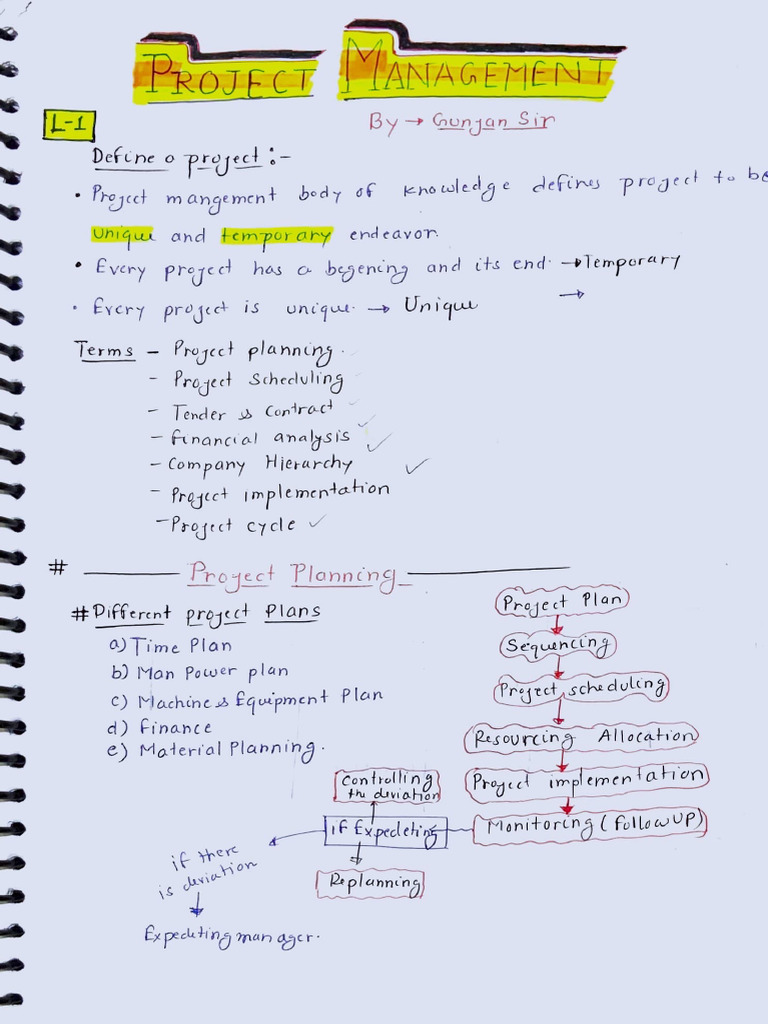 PROJECT MANAGEMENT
L-1
By → Gunjan Sir
Define a project :-
• Project mangement body of knowledge defines project to be
unique and temporary endeavor.
• Every project has a begening and its end. → Temporary
• Every project is unique. → Unique →
Terms - Project planning.
- Project scheduling
- Tender & contract
- Financial analysis
- Company Hierarchy
- Project implementation
- Project cycle
# Project Planning
# Different project Plans
a) Time Plan
b) Man Power plan
c) Machine & Equipment Plan
d) Finance
e) Material Planning.
Project Plan
Sequencing
Project scheduling
Resourcing Allocation
Project implementation
Monitoring (Follow UP)
if Expecleting
Controlling
the deviation
Replanning
if there
is deviation
Expecleting manager.